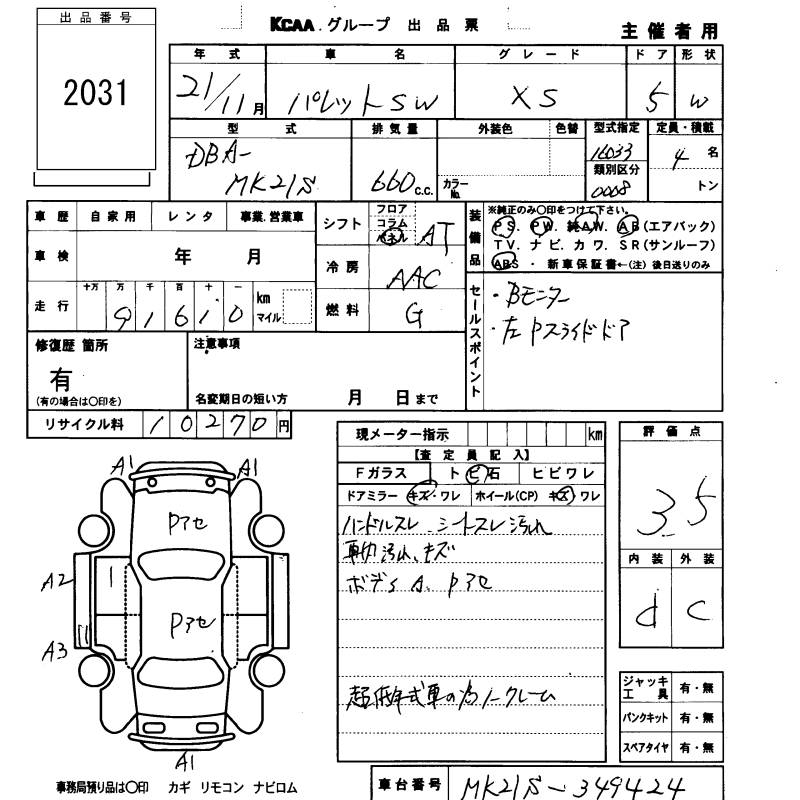 出品番号
2031
KCAA.グループ 出品票
主催者用
年式 車名 グレード ドア 形状
21/11月 パレットSW XS 5 W
型式 排気量 外装色 色替 型式指定 定員・積載
DBA-MK21S 660c.c. カラーNo. 16033 4名
類別区分
0008 トン
車歴 自家用 レンタ 事業.営業車
シフト フロア コラム パネル AT
装備品 ※純正のみ〇印をつけて下さい。
PS. PW. 純AW. AB(エアバック)
TV. ナビ. カワ. SR(サンルーフ)
ABS ・ 新車保証書←(注) 後日送りのみ
車検 年 月
冷房 AAC
走行 十万 万 千 百 十 一 km マイル
91610
燃料 G
セールスポイント
・Bモニター
・左Pスライドドア
修復歴 箇所
有
(有の場合は〇印を)
注意事項
名変期日の短い方 月 日まで
リサイクル料 10270円
現メーター指示 km
【査定員記入】
Fガラス トビ石 ヒビワレ
ドアミラー キズ・ワレ ホイール(CP) キズ ワレ
ハンドルスレ、シートスレ汚れ
車内汚れ、キズ
ボディA、Pアセ
超低年式車の為ノークレーム
評価点
3.5
内装 外装
d C
ジャッキ工具 有・無
パンクキット 有・無
スペアタイヤ 有・無
A1 A1
Pアセ
A2
Pアセ
A3
A1
事務局預り品は〇印 カギ リモコン ナビロム
車台番号 MK21S-349424